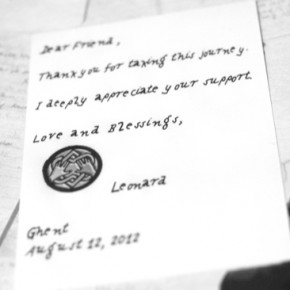 Dear Friend,
Thank you for taking this journey.
I deeply appreciate your support
Love and Blessings,
Leonard
Ghent
August 12, 2012